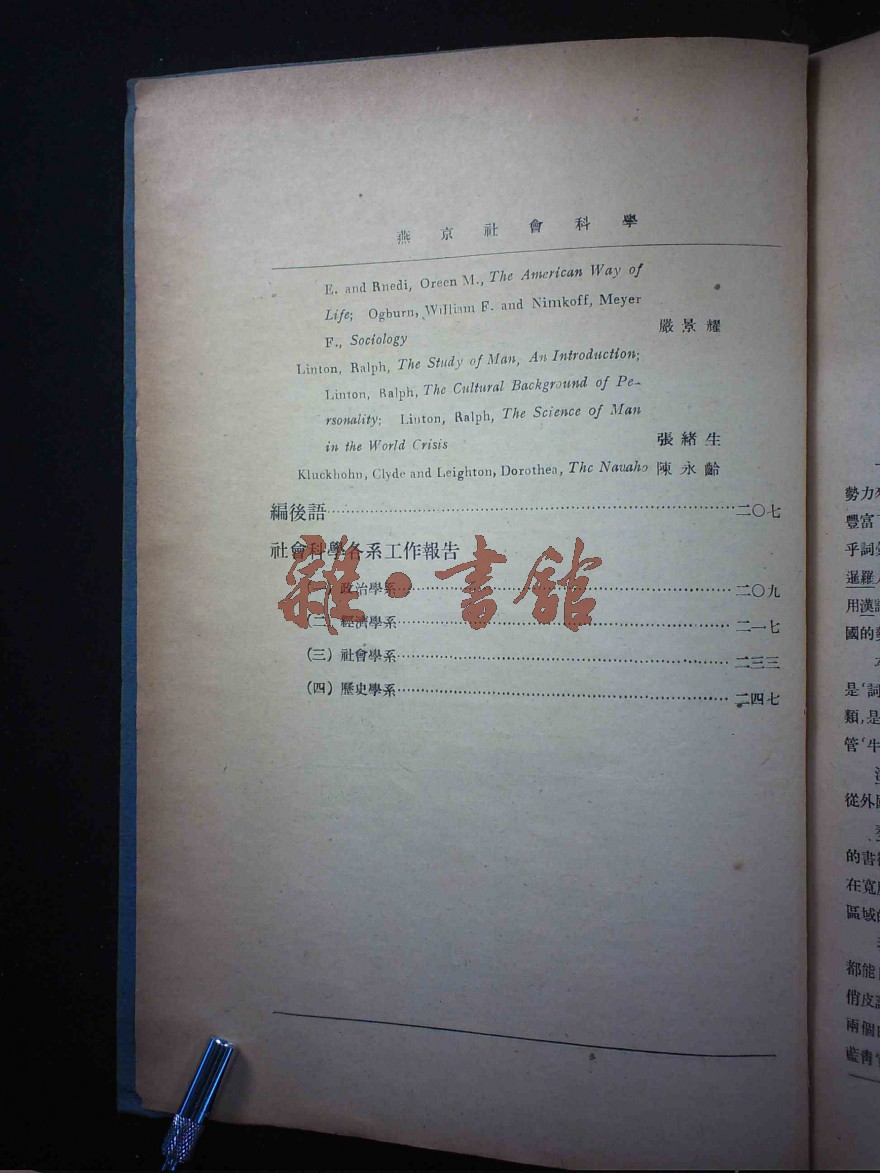 燕京社會科學
E. and Ruedi, Oreen M., The American Way of
Life; Ogburn, William F. and Nimkoff, Meyer
F., Sociology 嚴景耀
Linton, Ralph, The Study of Man, An Introduction;
Linton, Ralph, The Cultural Background of Pe-
rsonality; Linton, Ralph, The Science of Man
in the World Crisis 張緒生
Kluckhohn, Clyde and Leighton, Dorothea, The Navaho 陳永齡
編後語 二〇七
社會科學各系工作報告
(一) 政治學系 二〇九
(二) 經濟學系 二一七
(三) 社會學系 二三三
(四) 歷史學系 二四七
雜·書館
勢力
豐富
乎詞
暹羅
用漢
國的
是‘詞
類,是
管‘牛
從外
的書
在寬
區域
都能
俏皮
兩個
藍青